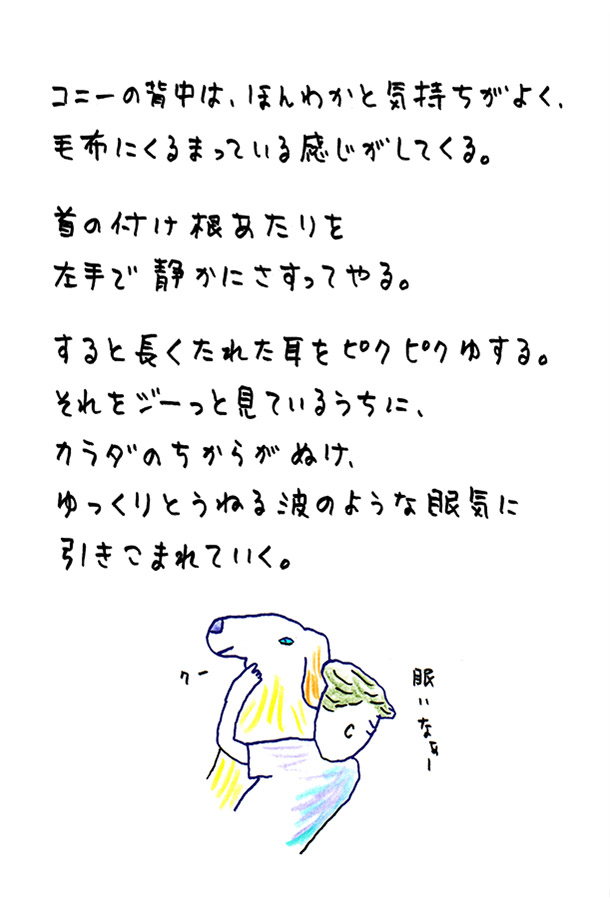 コニーの背中は、ほんわかと気持ちがよく、
毛布にくるまっている感じがしてくる。
首の付け根あたりを
左手で静かにさすってやる。
すると長くたれた耳をピクピクゆする。
それをジーっと見ているうちに、
カラダのちからがぬけ、
ゆっくりとうねる波のような眠気に
引きこまれていく。
クー
眠いなぁー